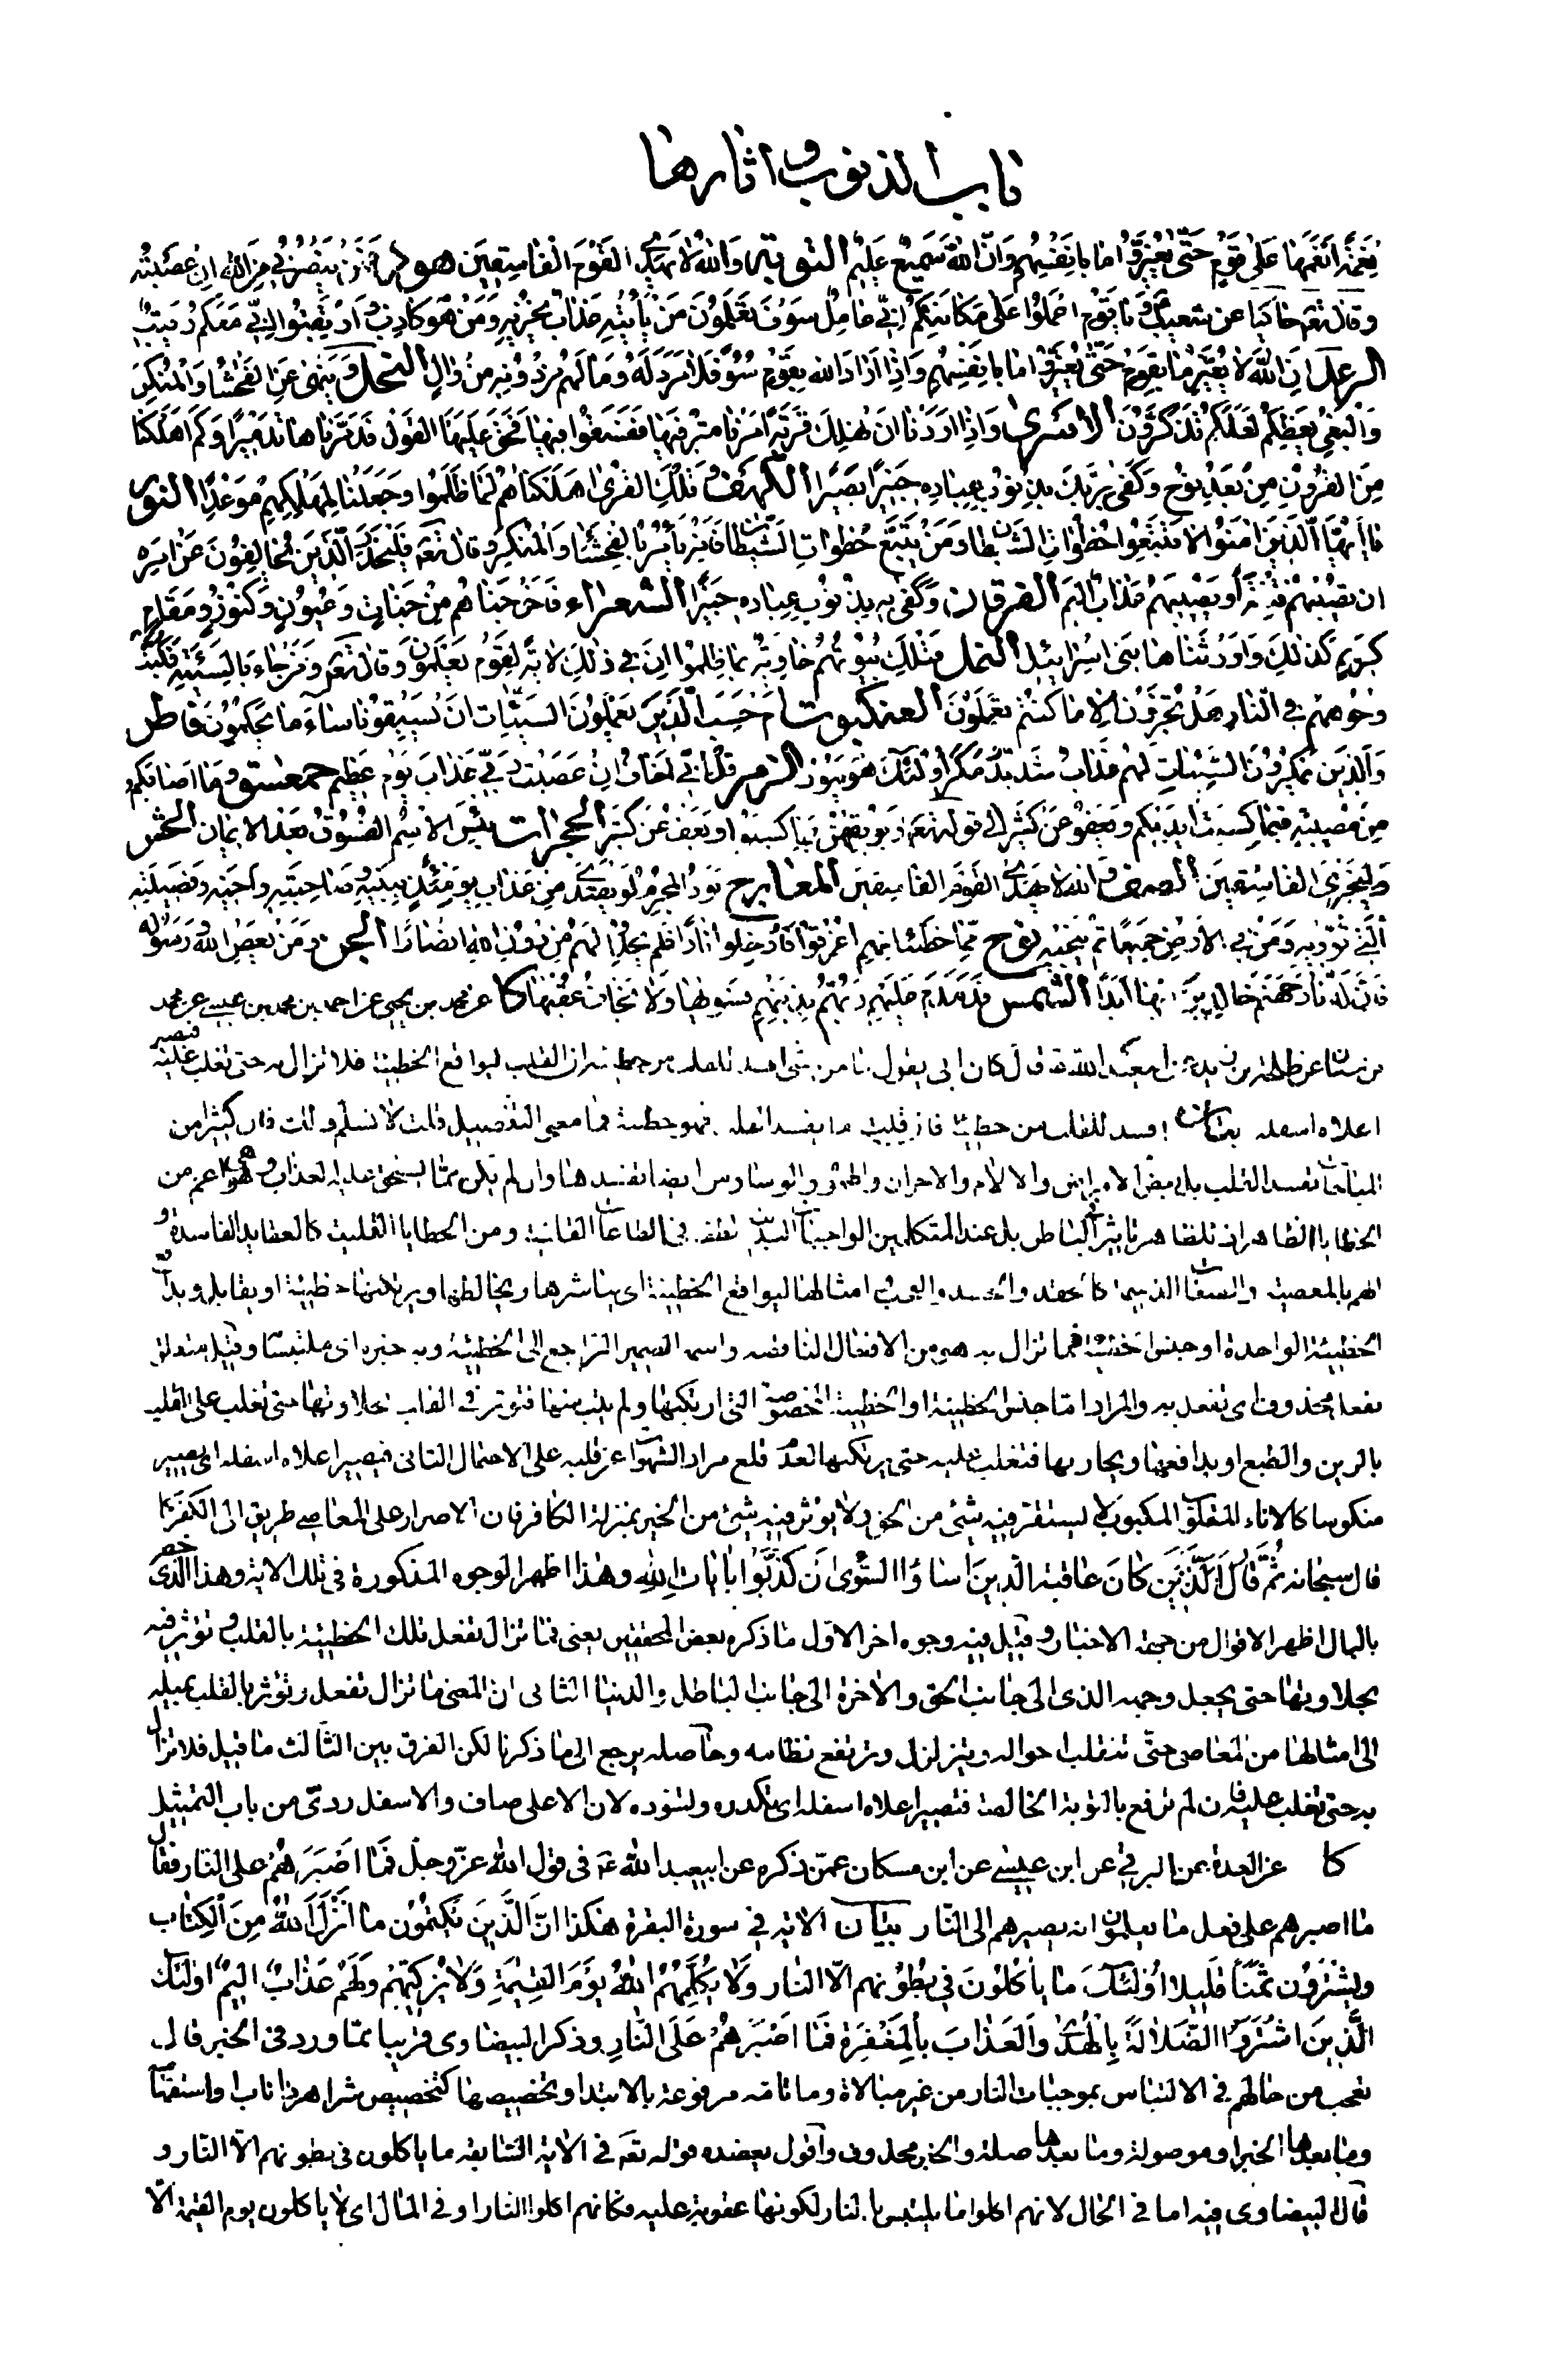 باب الذنوب و اثارها
نِعْمَةً اَنْعَمَهَا عَلٰى قَوْمٍ حَتّٰى يُغَيِّرُوا مَا بِاَنْفُسِهِمْ وَاَنَّ اللّٰهَ سَمِيعٌ عَلِيمٌ التوبة وَاللّٰهُ لَا يَهْدِي الْقَوْمَ الْفَاسِقِينَ هود فَمَنْ يَنْصُرُنِي مِنَ اللّٰهِ اِنْ عَصَيْتُهُ
وقال تعم حاكيا عن شعيب و يَا قَوْمِ اعْمَلُوا عَلٰى مَكَانَتِكُمْ اِنِّي عَامِلٌ سَوْفَ تَعْلَمُونَ مَنْ يَأْتِيهِ عَذَابٌ يُخْزِيهِ وَمَنْ هُوَ كَاذِبٌ وَارْتَقِبُوا اِنِّي مَعَكُمْ رَقِيبٌ
الرعد اِنَّ اللّٰهَ لَا يُغَيِّرُ مَا بِقَوْمٍ حَتّٰى يُغَيِّرُوا مَا بِاَنْفُسِهِمْ وَاِذَا اَرَادَ اللّٰه بِقَوْمٍ سُوءً فَلَا مَرَدَّ لَهُ وَمَا لَهُمْ مِنْ دُونِهِ مِنْ وَالٍ النحل وَيَنْهٰى عَنِ الْفَحْشَاء وَالْمُنْكَرِ
وَالْبَغْيِ يَعِظُكُمْ لَعَلَّكُمْ تَذَكَّرُونَ الاسرى وَاِذَا اَرَدْنَا اَنْ نُهْلِكَ قَرْيَةً اَمَرْنَا مُتْرَفِيهَا فَفَسَقُوا فِيهَا فَحَقَّ عَلَيْهَا الْقَوْلُ فَدَمَّرْنَاهَا تَدْمِيرًا وَكَمْ اَهْلَكْنَا
مِنَ الْقُرُونِ مِنْ بَعْدِ نُوحٍ وَكَفٰى بِرَبِّكَ بِذُنُوبِ عِبَادِهِ خَبِيرًا بَصِيرًا الكهف وَتِلْكَ الْقُرٰى اَهْلَكْنَاهُمْ لَمَّا ظَلَمُوا وَجَعَلْنَا لِمَهْلِكِهِمْ مَوْعِدًا النور
يَا اَيُّهَا الَّذِينَ اٰمَنُوا لَا تَتَّبِعُوا خُطُوَاتِ الشَّيْطَانِ وَمَنْ يَتَّبِعْ خُطُوَاتِ الشَّيْطَانِ فَاِنَّهُ يَأْمُرُ بِالْفَحْشَاءِ وَالْمُنْكَرِ وقال تعم فَلْيَحْذَرِ الَّذِينَ يُخَالِفُونَ عَنْ اَمْرِهِ
ان تُصِيبَهُمْ فِتْنَةٌ اَوْ يُصِيبَهُمْ عَذَابٌ اَلِيمٌ الفرقان وَكَفٰى بِهِ بِذُنُوبِ عِبَادِهِ خَبِيرًا الشعراء فَاَخْرَجْنَاهُمْ مِنْ جَنَّاتٍ وَعُيُونٍ وَكُنُوزٍ وَمَقَامٍ
كَرِيمٍ كَذٰلِكَ وَاَوْرَثْنَاهَا بَنِي اِسْرَائِيلَ النمل فَتِلْكَ بُيُوتُهُمْ خَاوِيَةً بِمَا ظَلَمُوا اِنَّ فِي ذٰلِكَ لَاٰيَةً لِقَوْمٍ يَعْلَمُونَ وقال تعم وَمَنْ جَاءَ بِالسَّيِّئَةِ فَكُبَّتْ
وُجُوهُهُمْ فِي النَّارِ هَلْ تُجْزَوْنَ اِلَّا مَا كُنْتُمْ تَعْمَلُونَ العنكبوت اَمْ حَسِبَ الَّذِينَ يَعْمَلُونَ السَّيِّئَاتِ اَنْ يَسْبِقُونَا سَاءَ مَا يَحْكُمُونَ فاطر
وَالَّذِينَ يَمْكُرُونَ السَّيِّئَاتِ لَهُمْ عَذَابٌ شَدِيدٌ وَمَكْرُ اُولٰئِكَ هُوَ يَبُورُ الزمر قُلْ اِنِّي اَخَافُ اِنْ عَصَيْتُ رَبِّي عَذَابَ يَوْمٍ عَظِيمٍ حمعسق وَمَا اَصَابَكُمْ
مِنْ مُصِيبَةٍ فَبِمَا كَسَبَتْ اَيْدِيكُمْ وَيَعْفُو عَنْ كَثِيرٍ الى قوله تعم اَوْ يُوبِقْهُنَّ بِمَا كَسَبُوا وَيَعْفُ عَنْ كَثِيرٍ الحجرات بِئْسَ الِاسْمُ الْفُسُوقُ بَعْدَ الْاِيمَانِ الحشر
وَلِيُخْزِيَ الْفَاسِقِينَ الصف وَاللّٰهُ لَا يَهْدِي الْقَوْمَ الْفَاسِقِينَ المعارج يَوَدُّ الْمُجْرِمُ لَوْ يَفْتَدِي مِنْ عَذَابِ يَوْمِئِذٍ بِبَنِيهِ وَصَاحِبَتِهِ وَاَخِيهِ وَفَصِيلَتِهِ
الَّتِي تُؤْوِيهِ وَمَنْ فِي الْاَرْضِ جَمِيعًا ثُمَّ يُنْجِيهِ نوح مِمَّا خَطِيئَاتِهِمْ اُغْرِقُوا فَاُدْخِلُوا نَارًا فَلَمْ يَجِدُوا لَهُمْ مِنْ دُونِ اللّٰهِ اَنْصَارًا الجن وَمَنْ يَعْصِ اللّٰهَ وَرَسُولَهُ
فَاِنَّ لَهُ نَارَ جَهَنَّمَ خَالِدِينَ فِيهَا اَبَدًا الشمس فَدَمْدَمَ عَلَيْهِمْ رَبُّهُمْ بِذَنْبِهِمْ فَسَوّٰيهَا وَلَا يَخَافُ عُقْبٰهَا كا عن محمد بن يحيى عن احمد بن محمد بن عيسى عن محمد
بن سنان عن طلحة بن زيد عن ابيعبد الله ع قال كان ابى يقول ما من شئ افسد للقلب من خطيئة ان القلب ليواقع الخطيئة فلا تزال به حتى تغلب عليه فيصير
اعلاه اسفله بيان افسد للقلب من خطيئة فان قلت ما يفسد القلب فهو خطيئة فما معنى التفضيل قلت لا نسلم ذلك فان كثيرا من
المباحات تفسد القلب بل بعض الامراض والالام والاحزان والهموم والوساوس ايضا تفسدها وان لم تكن مما يستحق عليه العذاب وهى اعم من
الخطايا الظاهرة اذ للظاهر تاثير فى الباطن بل عند المتكلمين الواجبات البدنية لطف فى الطاعات القلبية ومن الخطايا القلبية كالعقايد الفاسدة و
الهم بالمعصية والصفات الذميمة كالحقد والحسد والعجب وامثالها ليواقع الخطيئة اى يباشرها ويخالطها ويرتكبها خطيئة
الخطيئة الواحدة او جنس الخطيئة فما تزال به هو من الافعال الناقصة واسمه الضمير الراجع الى الخطيئة وبه خبره اى ملتبسا وقيل متعلق
بفعل محذوف اى تفعل به والمراد اما جنس الخطيئة او الخطيئة المخصوصة التى ارتكبها ولم يتب منها فتؤثر فى القلب بحلاوتها حتى تغلب على القلب
بالرين والطبع او يدافعها ويحاربها فتغلب عليه حتى يرتكبها لعدم قلع مراد الشهوات عن قلبه على الاحتمال الثانى فيصير اعلاه اسفله اى يصير
منكوسا كالاناء المقلوب المكبوب لا يستقر فيه شئ من الحق ولا يؤثر فيه شئ من الخير بمنزلة الكافر فان الاصرار على المعاصى طريق الى الكفر كما
قال سبحانه ثُمَّ كَانَ عَاقِبَةَ الَّذِينَ اَسَاؤُا السُّوٰاى اَنْ كَذَّبُوا بِاٰيَاتِ اللهِ وهذا اظهر الوجوه المذكورة فى تلك الاية وهذا الذى خطر
بالبال اظهر الاقوال من جهة الاخبار وقيل فيه وجوه اخر الاول ما ذكره بعض المحققين يعنى فما تزال تفعل تلك الخطيئة بالقلب و تؤثر فيه
بحلاوتها حتى يجعل وجهه الذى الى جانب الحق والاخرة الى جانب الباطل والدنيا الثانى ان المعنى ما تزال تفعل وتؤثر بالقلب بميله
الى امثالها من المعاصى حتى تنقلب احواله ويتزلزل وترتفع نظامه وحاصله يرجع الى ما ذكرنا لكن الفرق بين الثالث ما قيل فلا تزال
به حتى تغلب عليه فان لم ترفع بالتوبة الخالصة فتصير اعلاه اسفله اى تكدره وتسوده لان الاعلى صاف والاسفل ردى من باب التمثيل
كا عن العدة عن البرقى عن ابن عيسى عن ابن مسكان عمن ذكره عن ابيعبد الله ع فى قول الله عز وجل فَمَا اَصْبَرَهُمْ على النار فقال
ما اصبرهم على فعل ما يعلمون انه يصيرهم الى النار بيان الاية فى سورة البقرة هكذا اِنَّ الَّذِينَ يَكْتُمُونَ مَا اَنْزَلَ اللهُ مِنَ الْكِتَابِ
وَيَشْتَرُونَ ثَمَنًا قَلِيلًا اُولٰئِكَ مَا يَأْكُلُونَ فِي بُطُونِهِمْ اِلَّا النَّارَ وَلَا يُكَلِّمُهُمُ اللهُ يَوْمَ الْقِيٰمَةِ وَلَا يُزَكِّيهِمْ وَلَهُمْ عَذَابٌ اَلِيمٌ اُولٰئِكَ
الَّذِينَ اشْتَرَوُا الضَّلَالَةَ بِالْهُدٰى وَالْعَذَابَ بِالْمَغْفِرَةِ فَمَا اَصْبَرَهُمْ عَلَى النَّارِ وذكر البيضاوى قريبا مما ورد فى الخبر قال
تعجب من حالهم فى الالتباس بموجبات النار من غير مبالاة وما تامة مرفوعة بالابتداء وتخصيصها كتخصيص شر اهر ذا ناب او استفهامية
وما بعدها الخبر او موصولة وما بعدها صلة والخبر محذوف واقول يعضده قوله تعم فى الاية السابقة ما ياكلون فى بطونهم الا النار و
قال البيضاوى فيه اما فى الحال لانهم اكلوا ما يلتبس بالنار لكونها عقوبة عليه فكانهم اكلوا النار او فى المآل اى لا ياكلون يوم القيمة الا